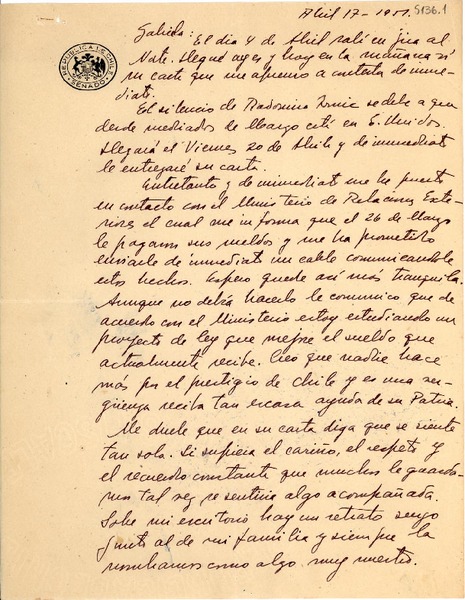 Abril 17 - 1951.
5136.1
REPUBLICA DE CHILE
SENADO
Gabriela:
El día 4 de Abril salí en jira al
Norte. Llegué ayer y hoy en la mañana vi
su carta que me apresuro a contestar de inme-
diato.
El silencio de Radomiro Tomic se debe a que
desde mediados de Marzo está en E. Unidos.
Llegará el Viernes 20 de Abril y de inmediato
le entregaré su carta.
Entretanto y de inmediato me he puesto
en contacto con el Ministerio de Relaciones Exte-
riores el cual me informa que el 26 de Marzo
le pagaron sus sueldos y me ha prometido
enviarle de inmediato un cable comunicándole
estos hechos. Espero quede así más tranquila.
Aunque no debía hacerlo le comunico que de
acuerdo con el Ministerio estoy estudiando un
proyecto de ley que mejore el sueldo que
actualmente recibe. Creo que nadie hace
más por el prestigio de Chile y es una ver-
güenza reciba tan escasa ayuda de su Patria.
Me duele que en su carta diga que se siente
tan sola. Si supiera el cariño, el respeto y
el recuerdo constante que muchos le guarda-
mos tal vez se sentiría algo acompañada.
Sobre mi escritorio hay un retrato suyo
junto al de mi familia y siempre la
nombramos como algo muy nuestro.